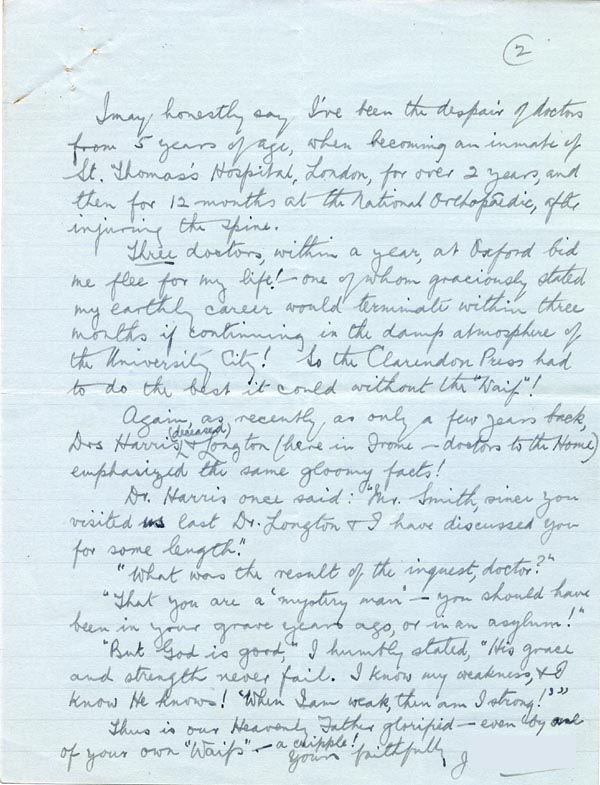 2
I may honestly say I've been the despair of doctors
from 5 years of age, when becoming an inmate of
St. Thomas's Hospital, London, for over 2 years, and
then for 12 months at the National Orthopædic, after
injuring the spine.
Three doctors, within a year, at Oxford bid
me flee for my life! — one of whom graciously stated
my earthly career would terminate within three
months if continuing in the damp atmosphere of
the University City! So the Clarendon Press had
to do the best it could without the "Waif"!
Again, as recently as only a few years back,
(deceased)
Drs Harris, & Longton (here in Frome — doctors to the Home)
emphasized the same gloomy facts!
Dr. Harris once said: "Mr. Smith, since you
visited us last Dr. Longton & I have discussed you
for some length."
"What was the result of the inquest, doctor?"
"That you are a 'mystery man' — you should have
been in your grave years ago, or in an asylum!"
"But God is good," I humbly stated, "His grace
and strength never fail. I know my weakness, & I
know He knows! 'When I am weak, then am I strong!'"
Thus is our Heavenly Father glorified — even by one
of your own "Waifs" — a cripple!
Yours faithfully
J